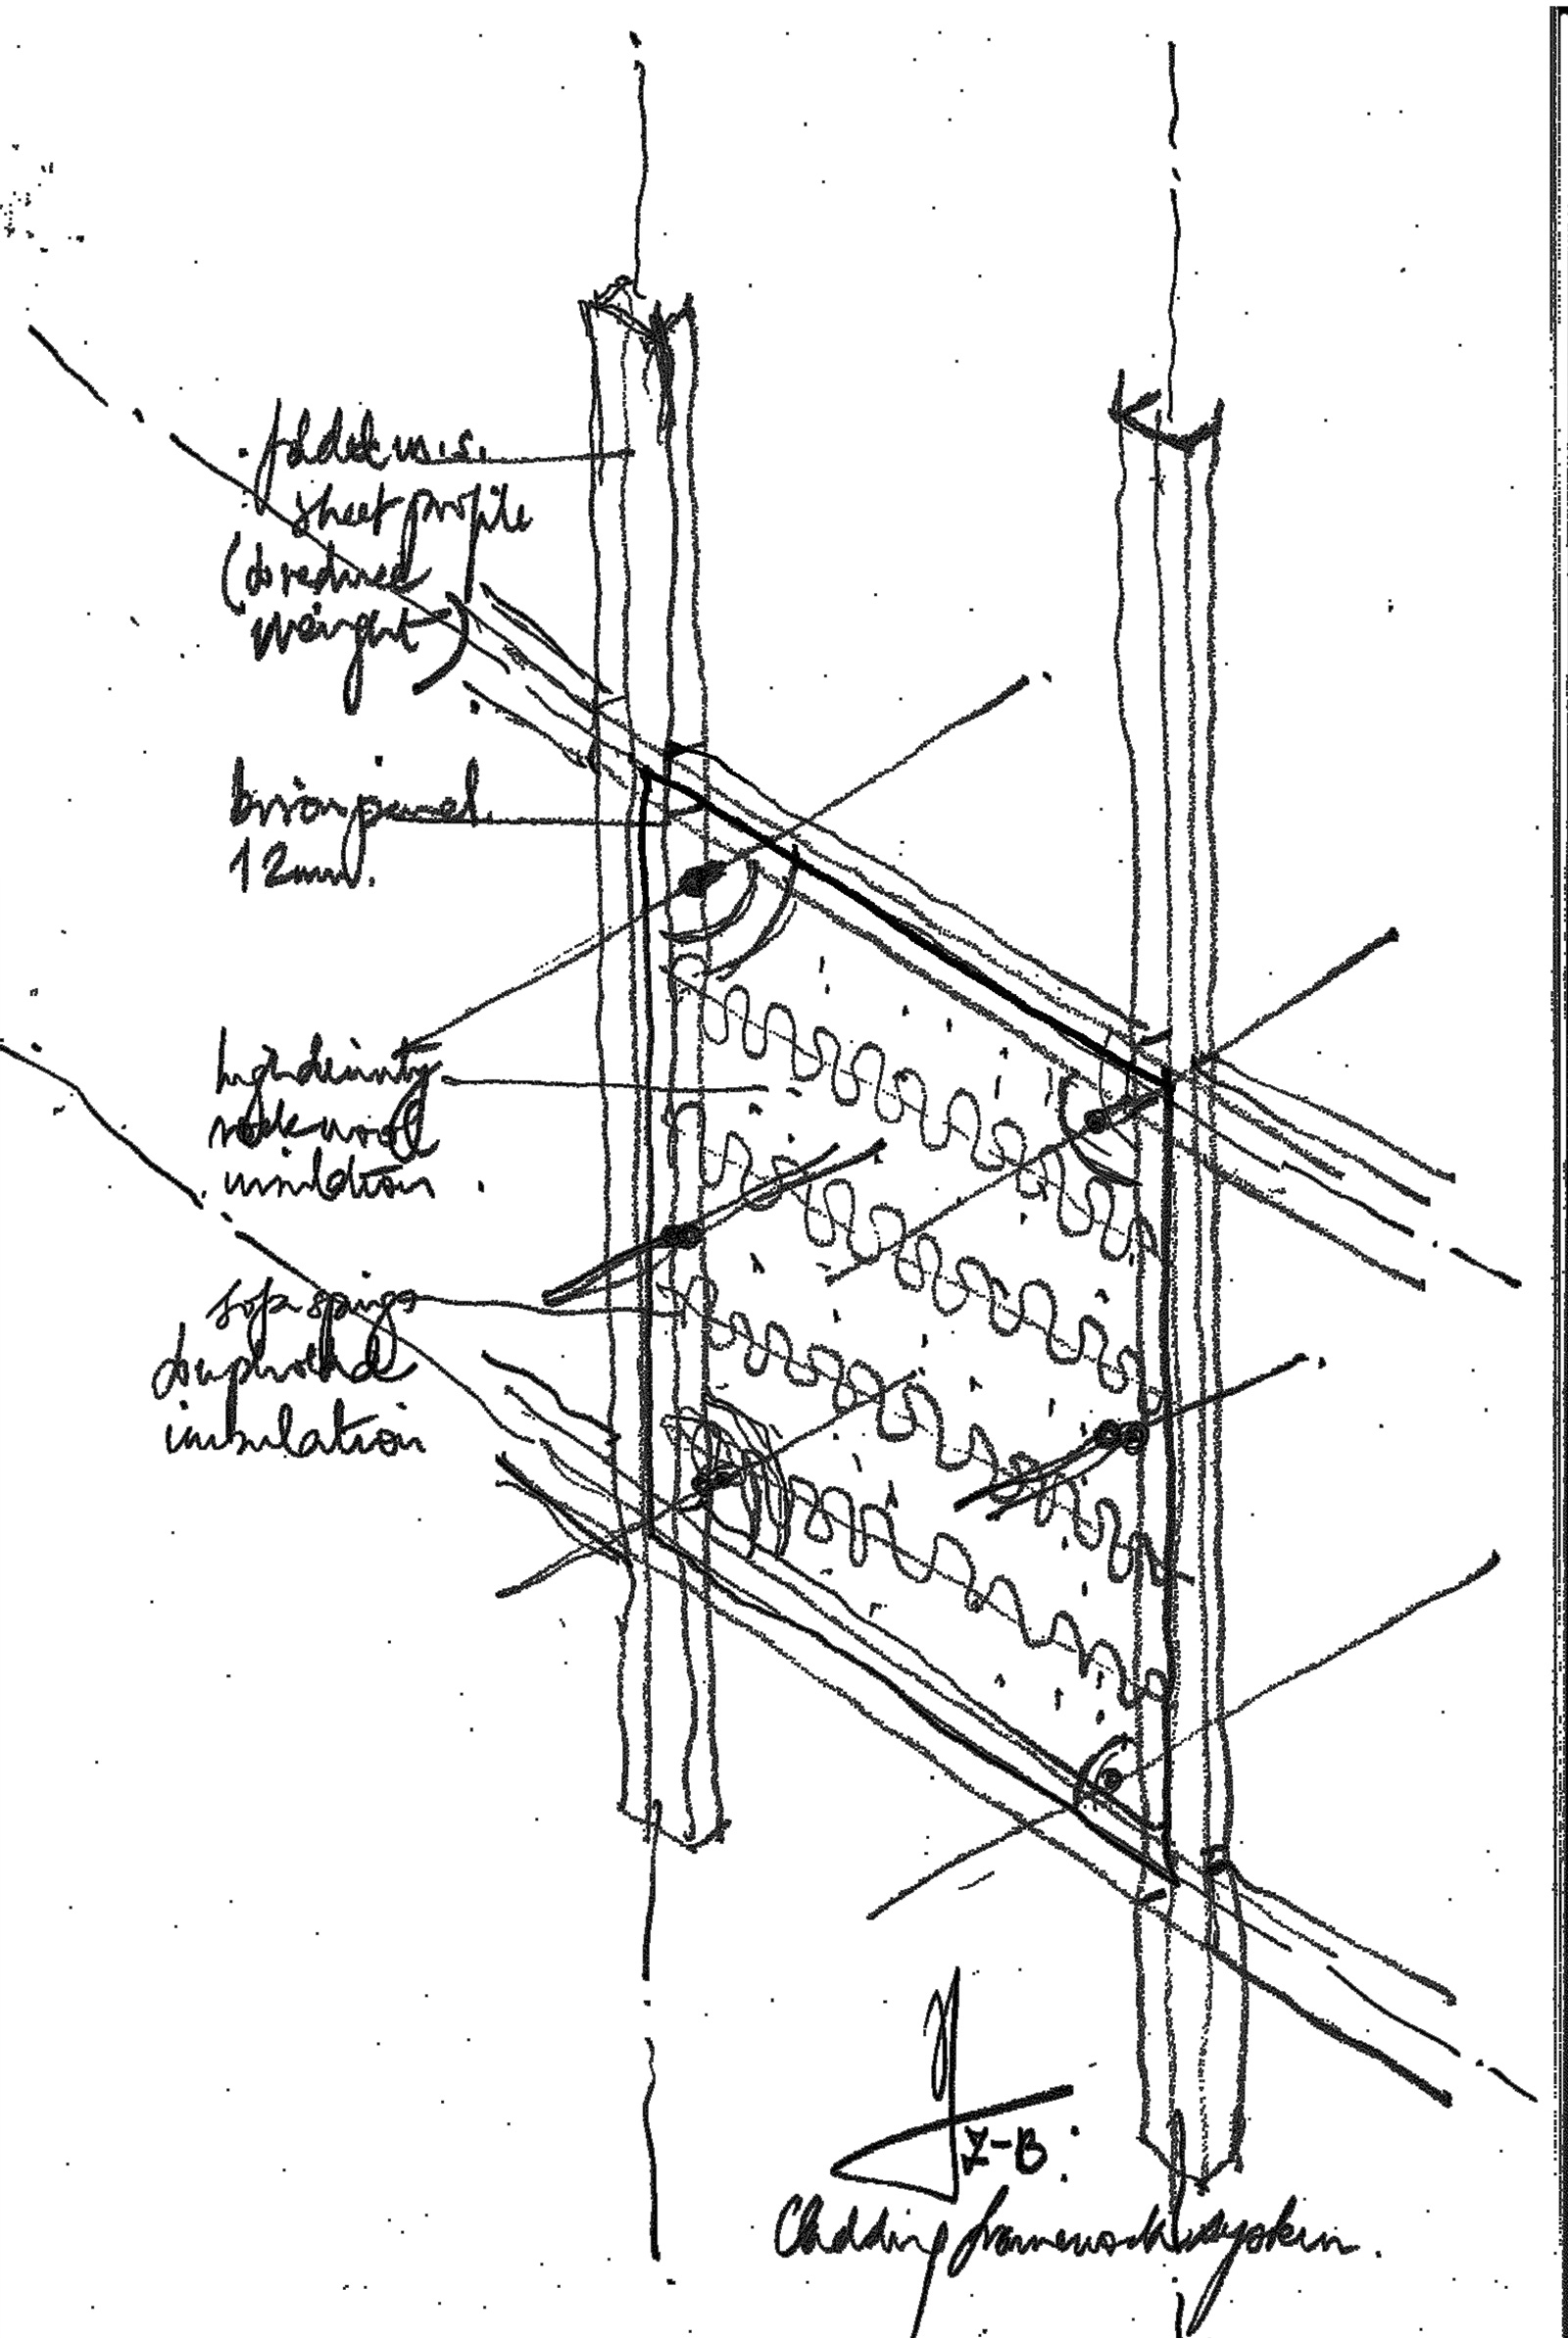 . folded m.s.
sheet profile
(to reduced
weight)
panel.
12mm.
high density
rockwool
insulation.
springs
to uphold
insulation
Z-B:
Cladding framework system.